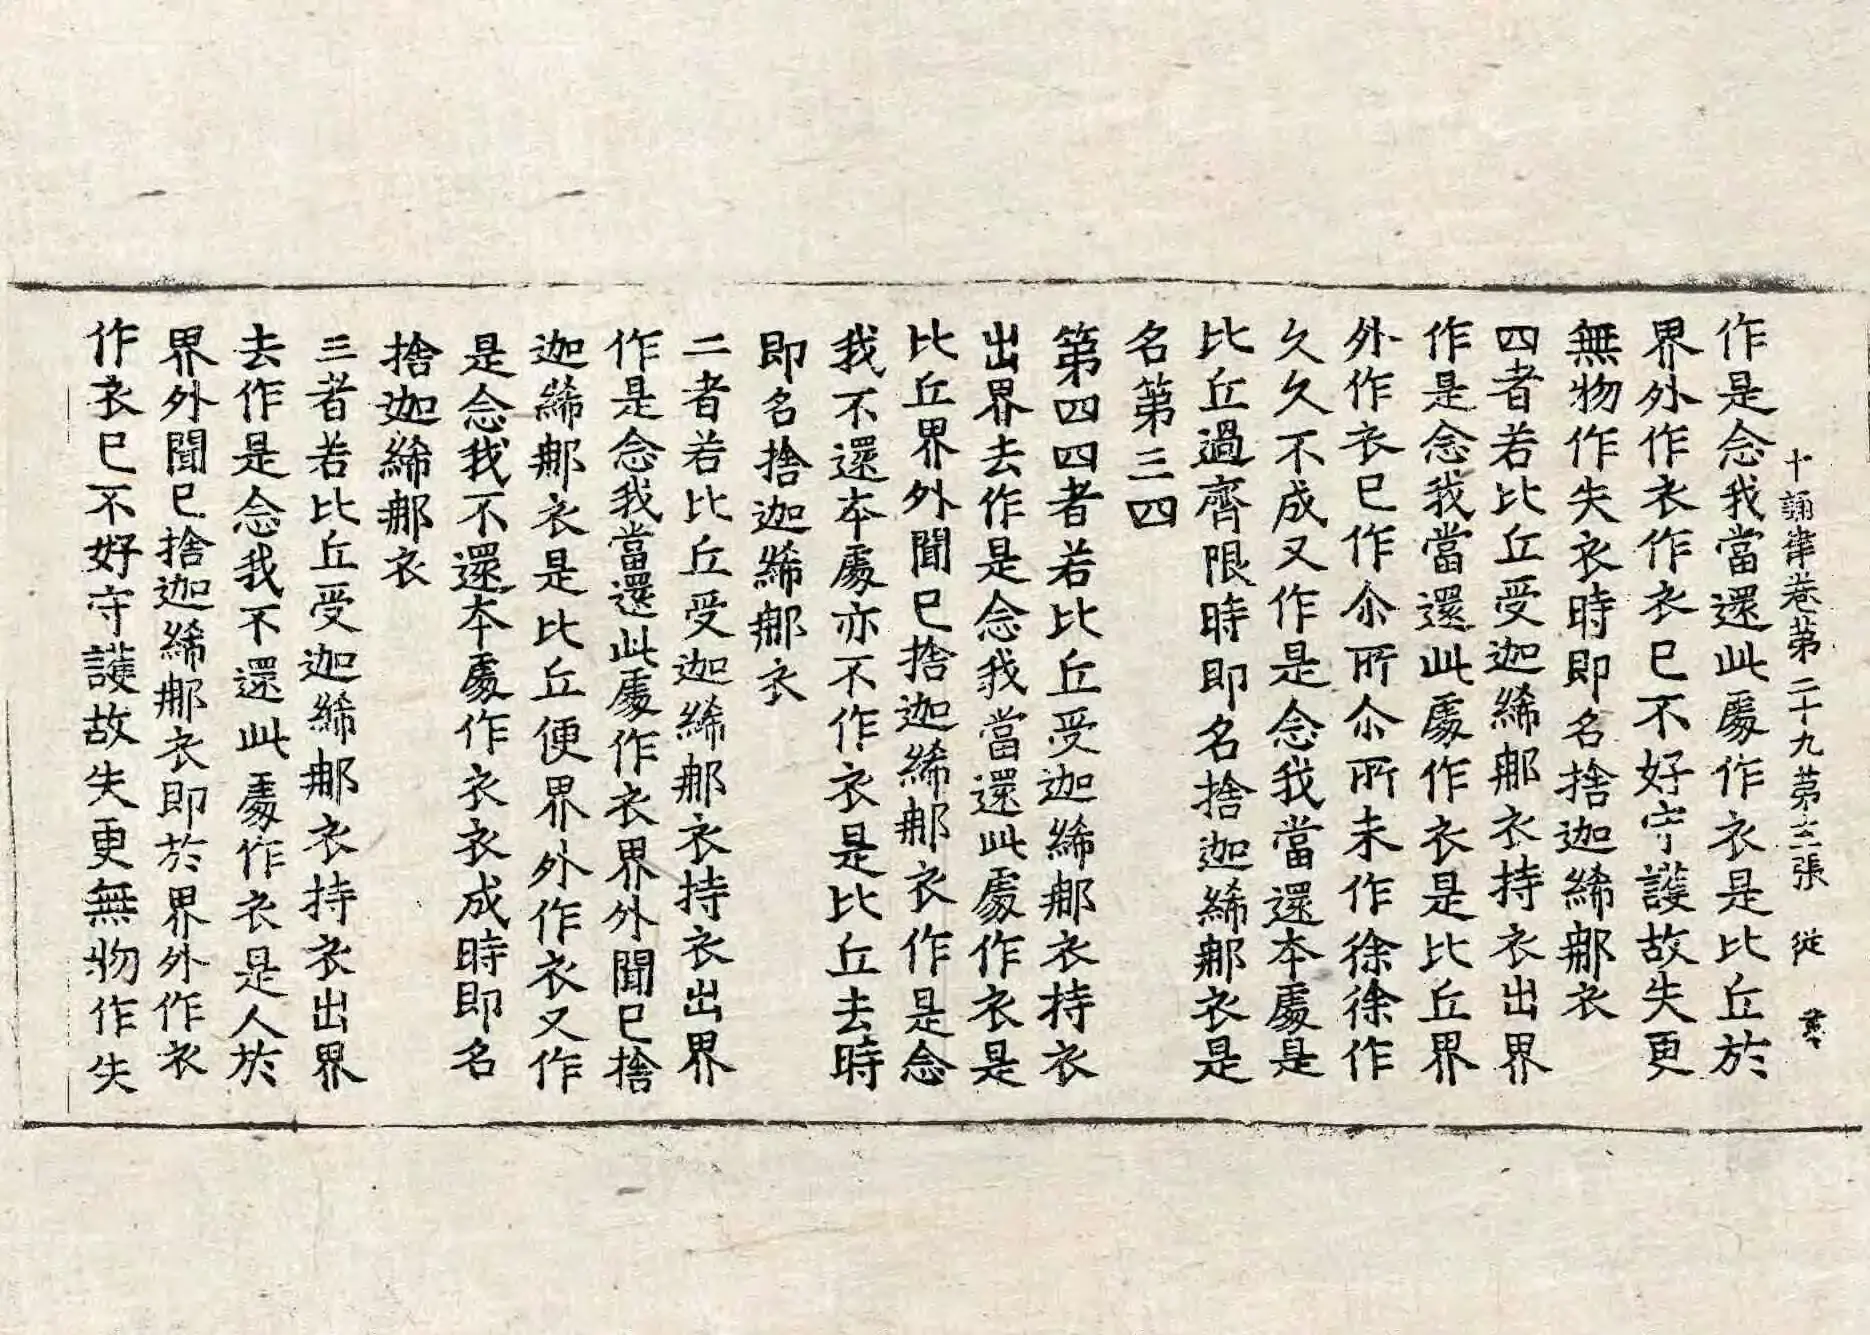 十誦律卷第二十九第三張 從
作是念我當還此處作衣是比丘於
界外作衣作衣已不好守護故失更
無物作失衣時即名捨迦絺那衣
四者若比丘受迦絺那衣持衣出界
作是念我當還此處作衣是比丘界
外作衣已作尒所尒所未作徐徐作
久久不成又作是念我當還本處是
比丘過齊限時即名捨迦絺那衣是
名第三四
第四四者若比丘受迦絺那衣持衣
出界去作是念我當還此處作衣是
比丘界外聞已捨迦絺那衣作是念
我不還本處亦不作衣是比丘去時
即名捨迦絺那衣
二者若比丘受迦絺那衣持衣出界
作是念我當還此處作衣界外聞已捨
迦絺那衣是比丘便界外作衣又作
是念我不還本處作衣衣成時即名
捨迦絺那衣
三者若比丘受迦絺那衣持衣出界
去作是念我不還此處作衣是人於
界外聞已捨迦絺那衣即於界外作衣
作衣已不好守護故失更無物作失